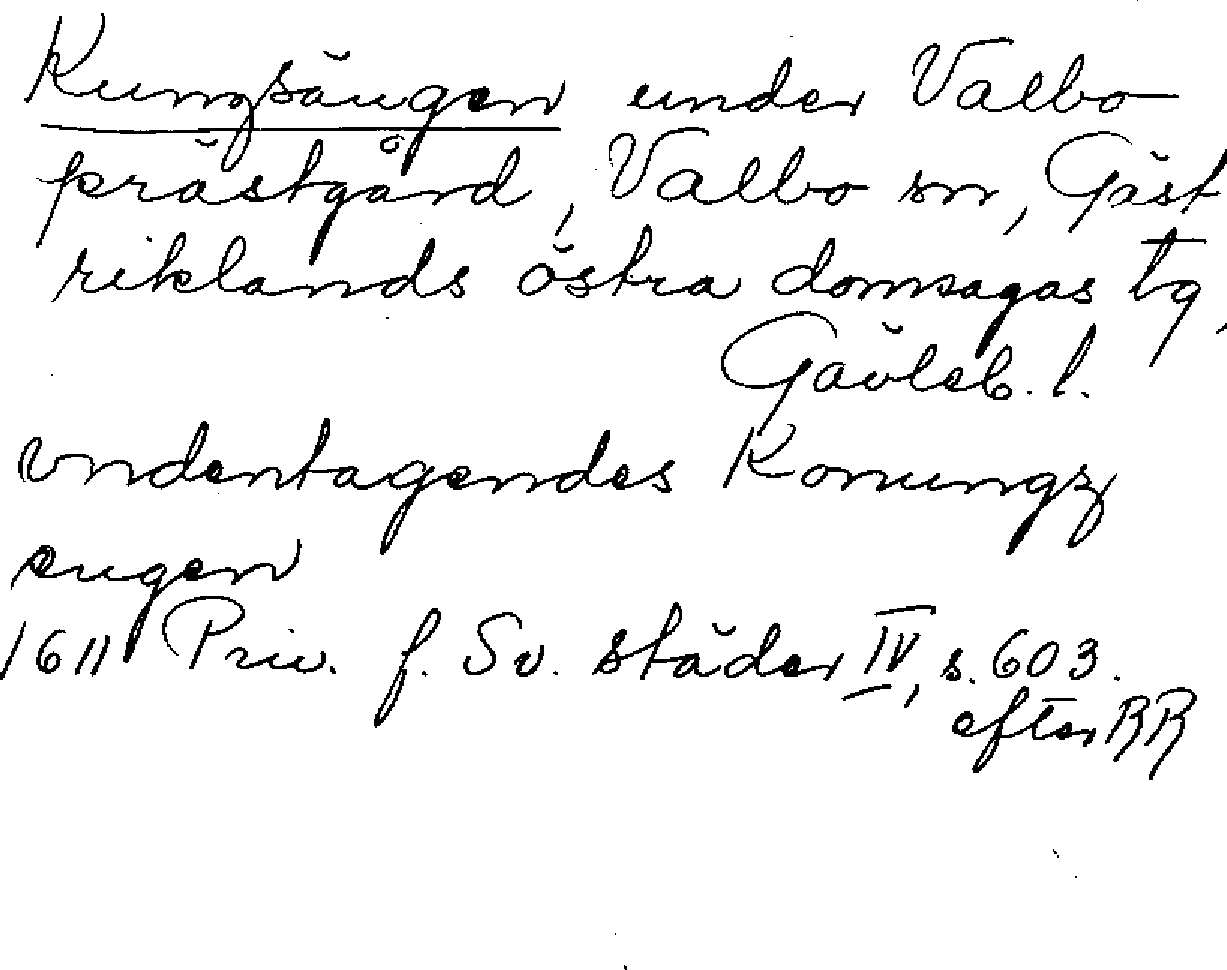 Kungsängen under Valbo
prästgård, Valbo sn, Gäst
riklands östra domsagas tg,
Gävleb. l.
vndentagendes Konungz
engen
1611 Priv. f. Sv. städer IV, s. 603.
efter RR